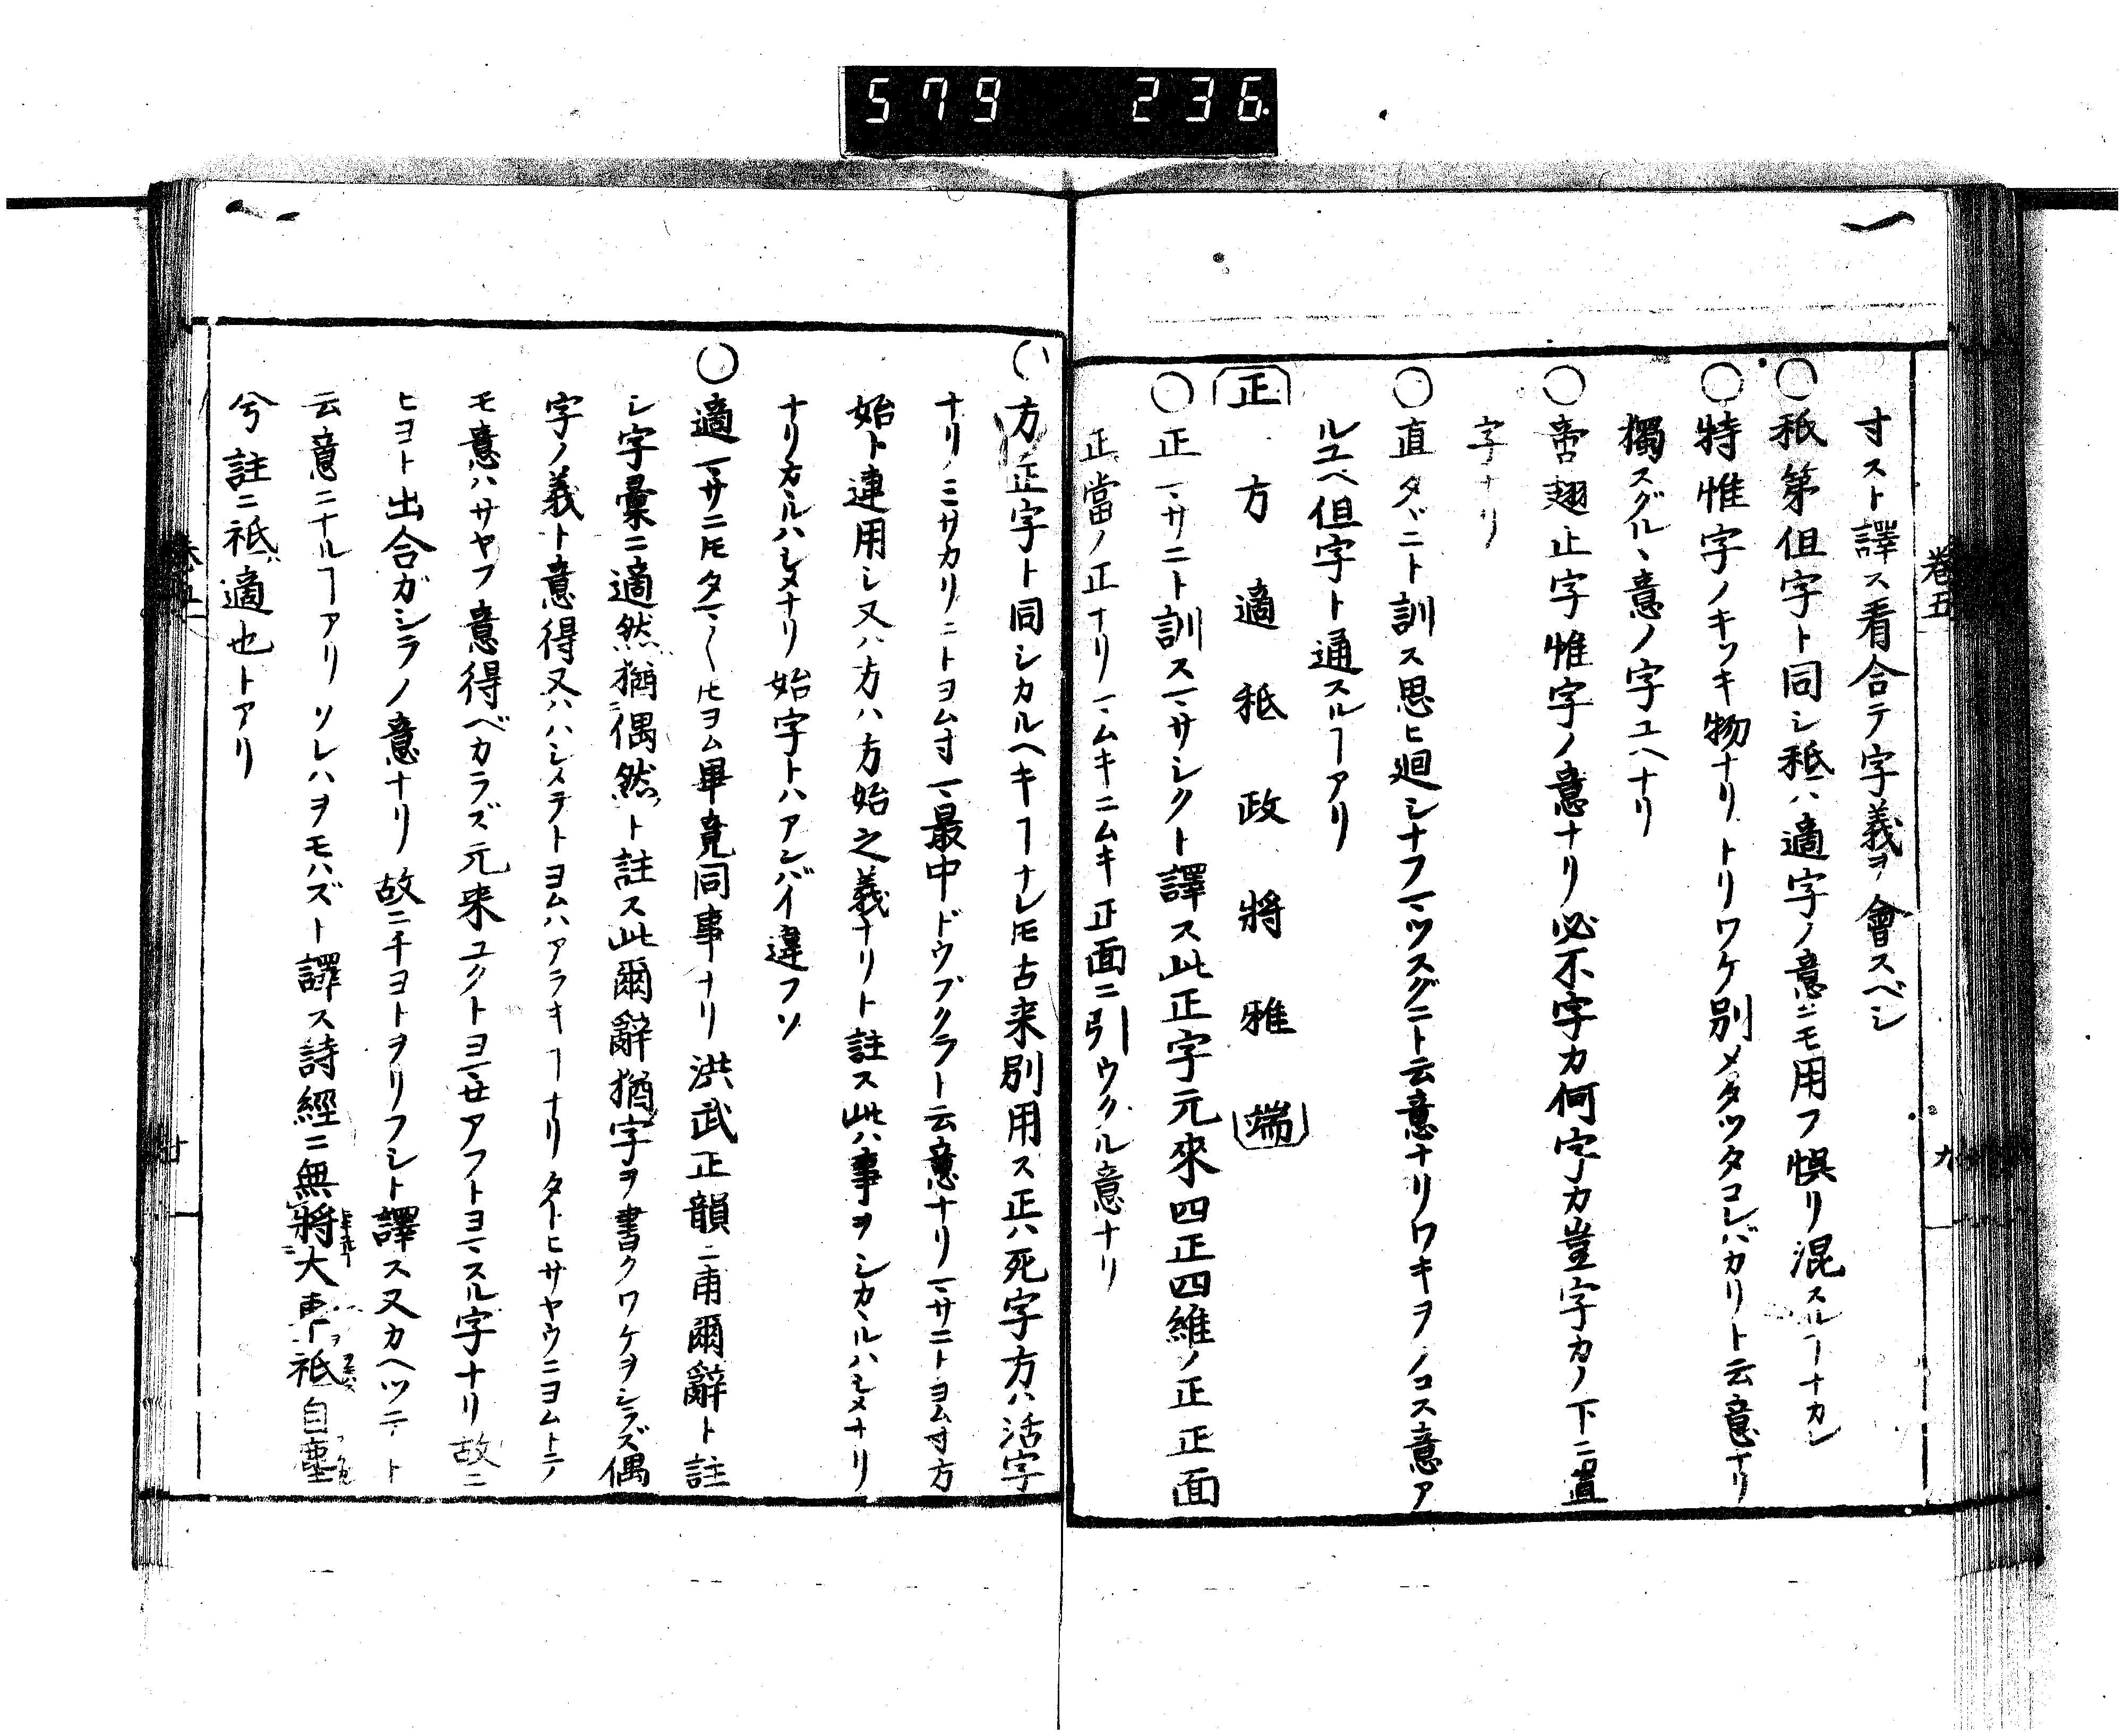 579 236
卷五
九
寸スト譯ス看合テ字義ヲ會スベシ
○秖第但字ト同シ秖ハ適字ノ意ニモ用フ悞リ混スルヿナカレ
○特惟字ノキツキ物ナリトリワケ別メタツタコレバカリト云意ナリ
獨スグルヽ意ノ字ユヘナリ
○啻翅止字惟字ノ意ナリ必不字カ何字カ豈字カノ下ニ置
字ナリ
○直タヾニト訓ス思ヒ廻シナフマツスグニト云意ナリワキヲノコス意ア
ルユヘ但字ト通スルヿアリ
正方適秖政將雅端
○正マサニト訓スマサシクト譯ス此正字元來四正四維ノ正正面
正當ノ正ナリマムキニムキ正面ニ引ウクル意ナリ
○方正字ト同シカルヘキヿナレ𪜈古来別用ス正ハ死字方ハ活字
ナリミサカリニトヨム寸マ最中ドウブクラト云意ナリマサニトヨム寸方
始ト連用シ又ハ方ハ方始之義ナリト註ス此ハ事ヲシカヽルハシメナリ
ナリカヽルハシメナリ始字トハアンバイ違フソ
○適マサニ𪜈タマ〱𪜈ヨム畢竟同事ナリ洪武正韻ニ甫爾辭ト註
シ字彙ニ適然猶偶然ト註ス此爾辭猶字ヲ書クワケヲシラズ偶
字ノ義ト意得又ハハシメテトヨムハアラキヿナリタトヒサヤウニヨムトテ
モ意ハサヤフ意得ベカラズ元来ユクトヨマセアフトヨマスル字ナリ故ニ
ヒヨト出合ガシラノ意ナリ故ニチヨトヲリフシト譯ス又カヘツテト
云意ニナルヿアリソレハヲモハズト譯ス詩經ニ無將大車秖自塵
兮註ニ祗適也トアリ
卷五